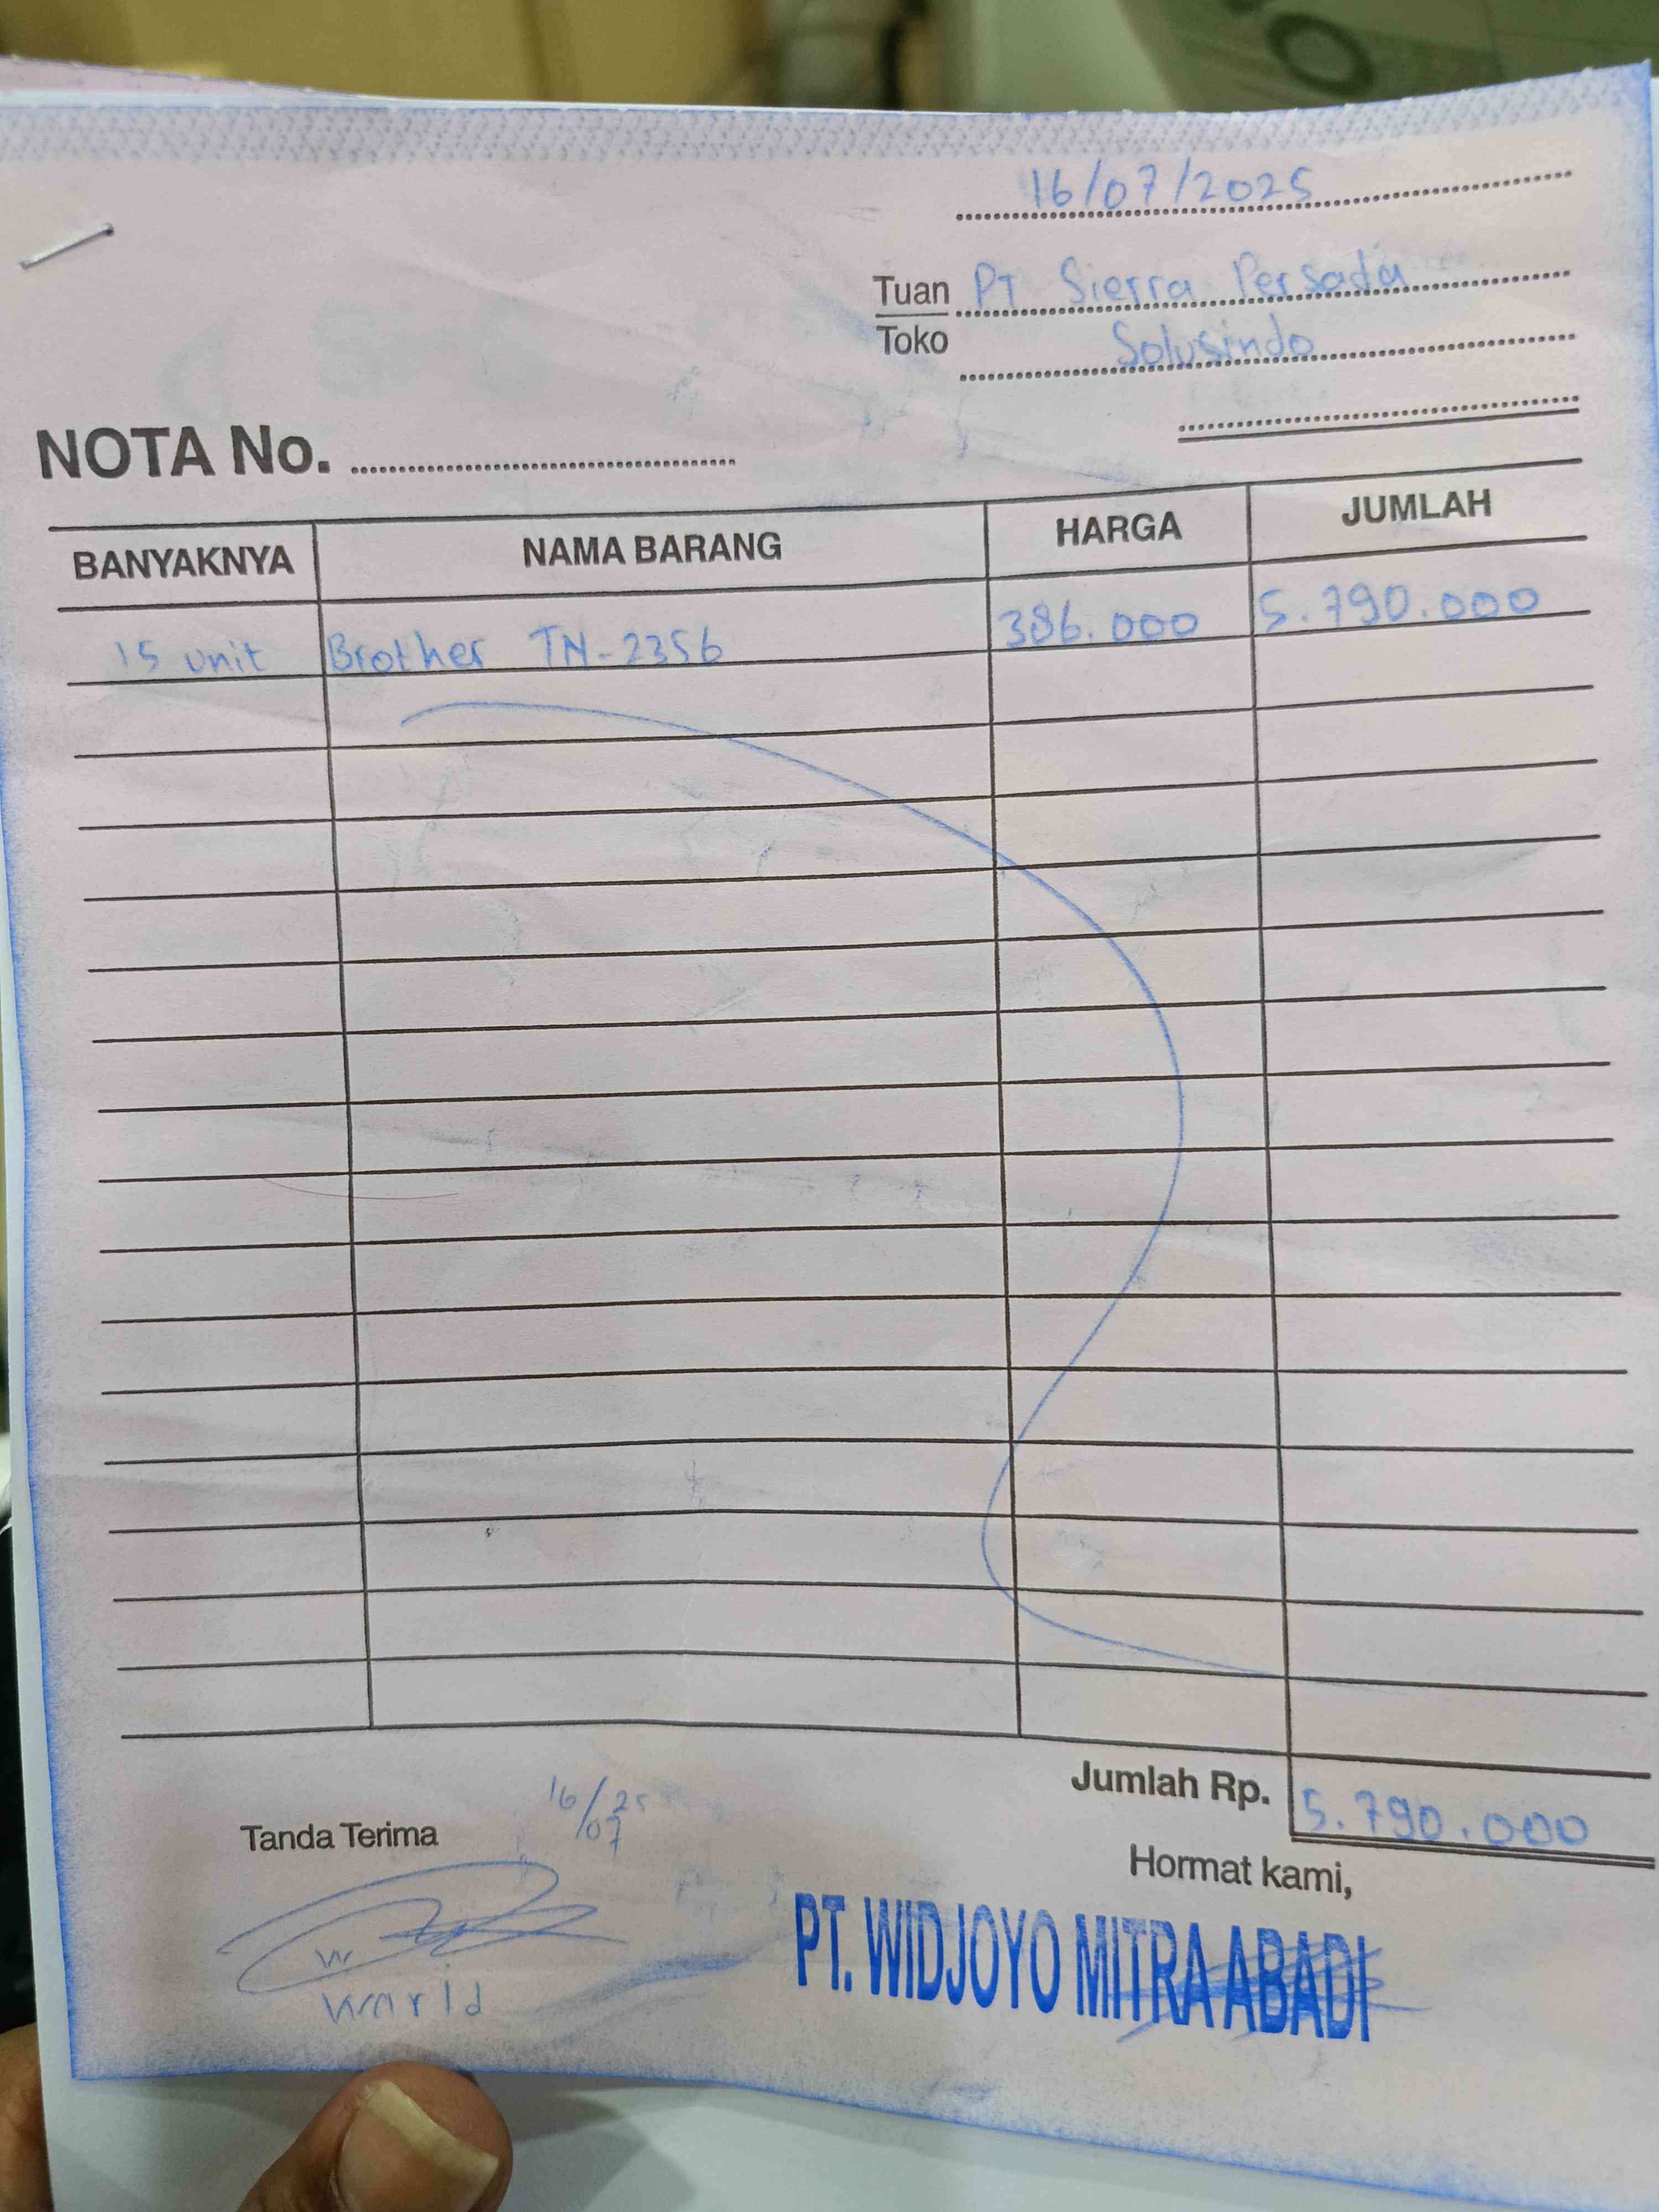 16/07/2025
Tuan PT Sierra Persada
Toko Solusindo
NOTA No.
BANYAKNYA NAMA BARANG HARGA JUMLAH
15 unit Brother TN-2356 386.000 5.790.000
Jumlah Rp. 5.790.000
Tanda Terima 16/07 25
Hormat kami,
PT. WIDJOYO MITRA ABADI
Warid